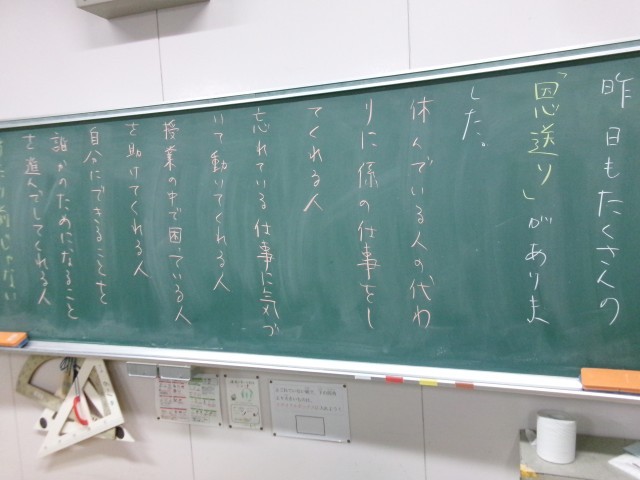 昨日もたくさんの
「恩送り」がありま
した。
休んでいる人の代わ
りに係の仕事をし
てくれる人
忘れている仕事に気づ
いて動いてくれる人
授業の中で困っている人
を助けてくれる人
自分にできることを
誰かのためになること
を進んでしてくれる人
当たり前じゃない